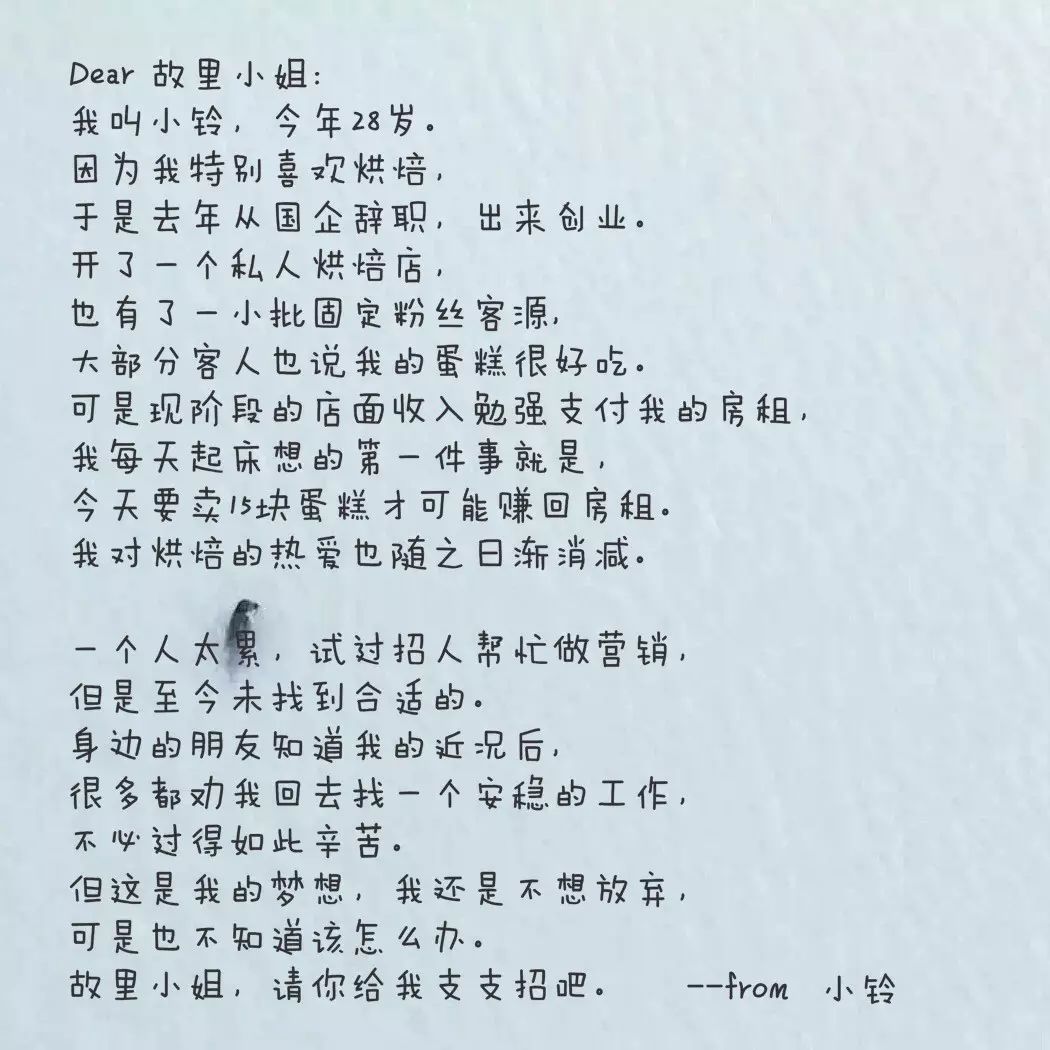 Dear 故里小姐:
我叫小铃，今年28岁。
因为我特别喜欢烘焙，
于是去年从国企辞职，出来创业。
开了一个私人烘焙店，
也有了一小批固定粉丝客源，
大部分客人也说我的蛋糕很好吃。
可是现阶段的店面收入勉强支付我的房租，
我每天起床想的第一件事就是，
今天要卖15块蛋糕才可能赚回房租。
我对烘焙的热爱也随之日渐消减。
一个人太累，试过招人帮忙做营销，
但是至今未找到合适的。
身边的朋友知道我的近况后，
很多都劝我回去找一个安稳的工作，
不必过得如此辛苦。
但这是我的梦想，我还是不想放弃，
可是也不知道该怎么办。
故里小姐，请你给我支支招吧。 --from 小铃